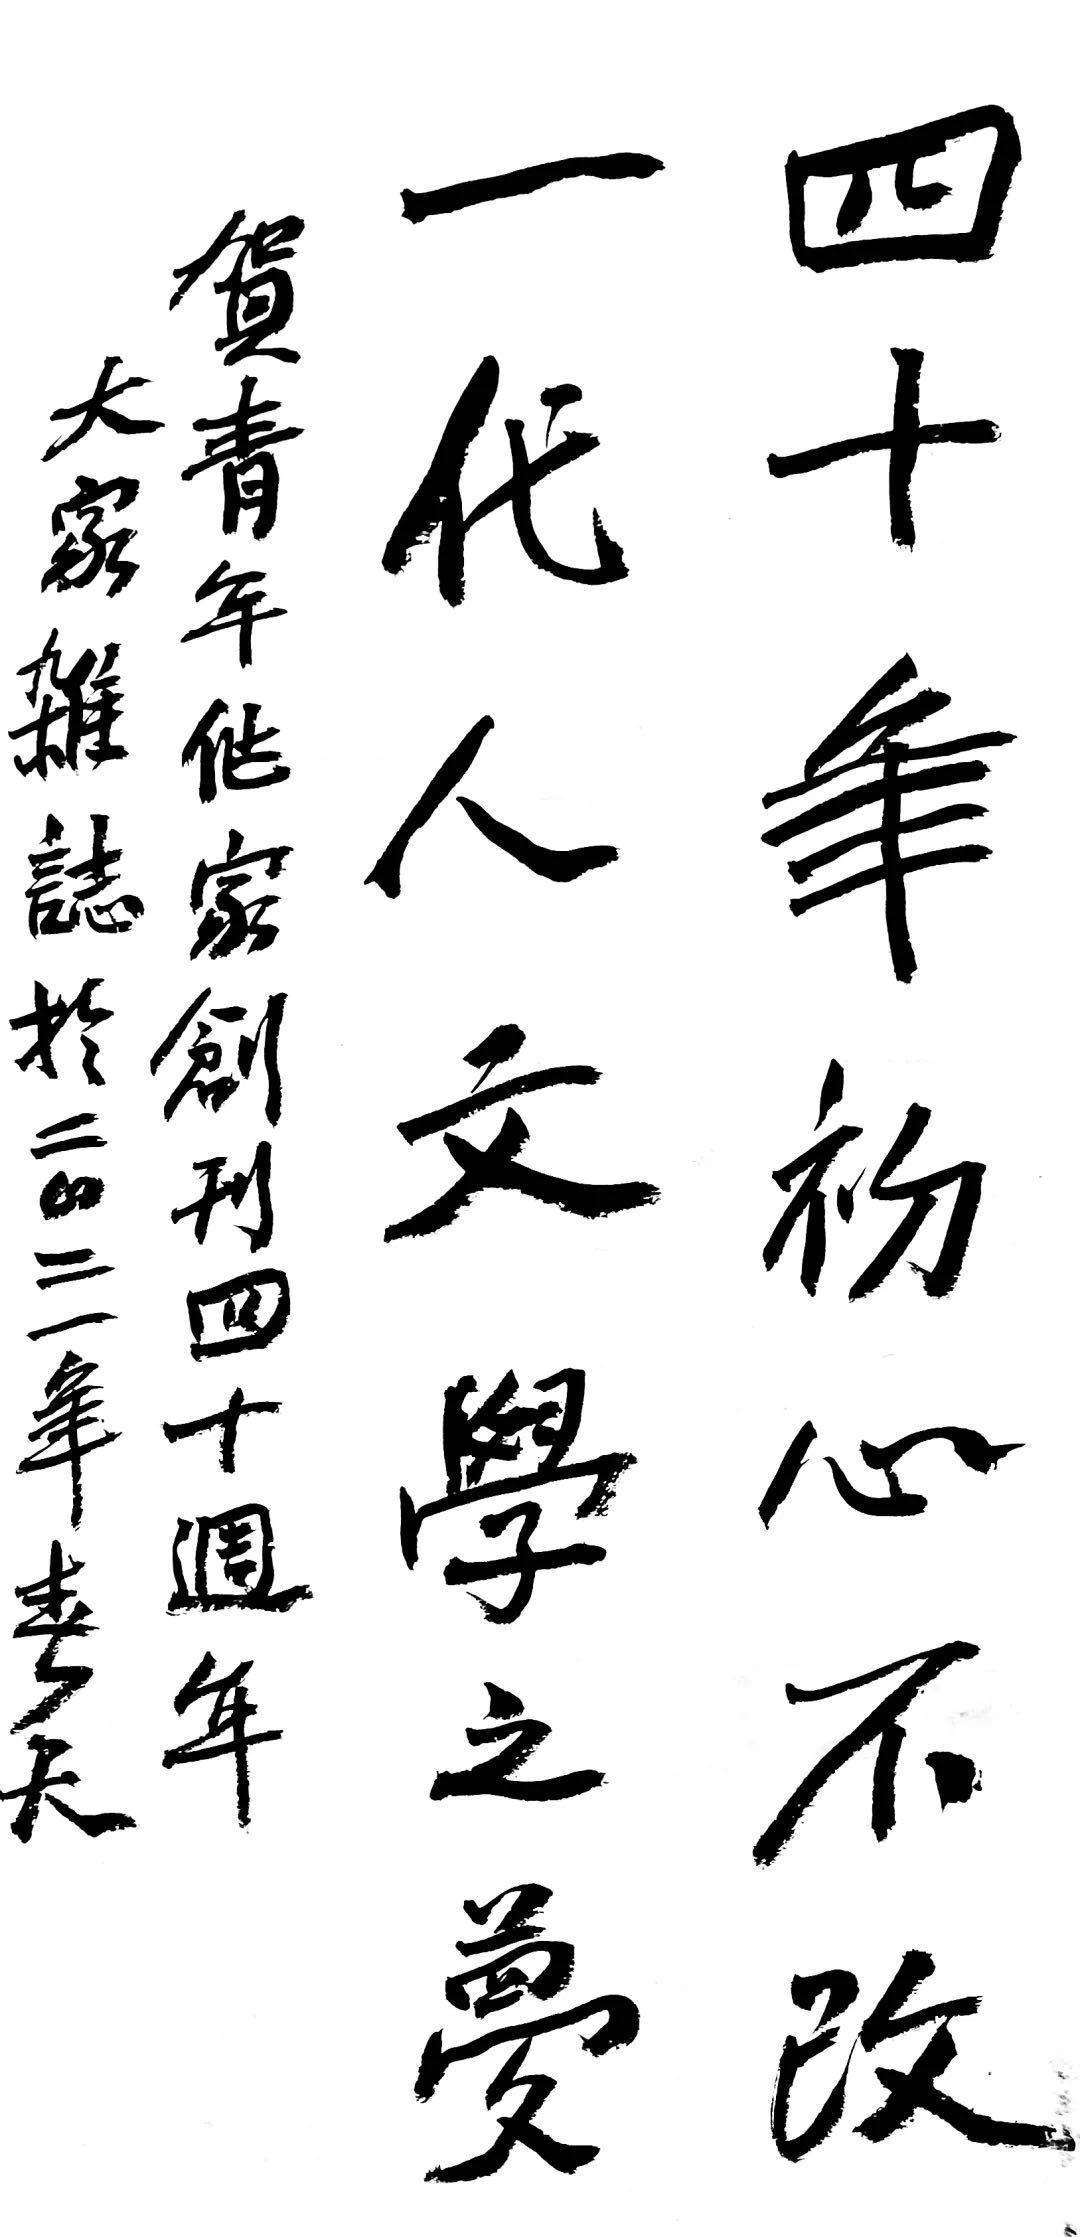 四十年初心不改
一代人文學之夢
賀青年作家創刊四十週年
大家雜誌於二〇二一年春天